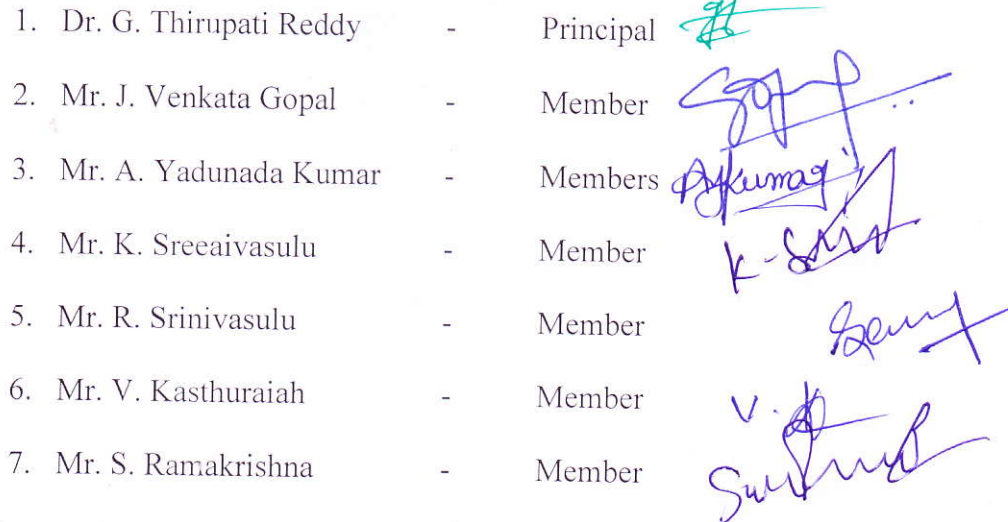 1. Dr. G. Thirupati Reddy - Principal
2. Mr. J. Venkata Gopal - Member
3. Mr. A. Yadunada Kumar - Members AyKumar
4. Mr. K. Sreeaivasulu - Member
5. Mr. R. Srinivasulu - Member
6. Mr. V. Kasthuraiah - Member
7. Mr. S. Ramakrishna - Member